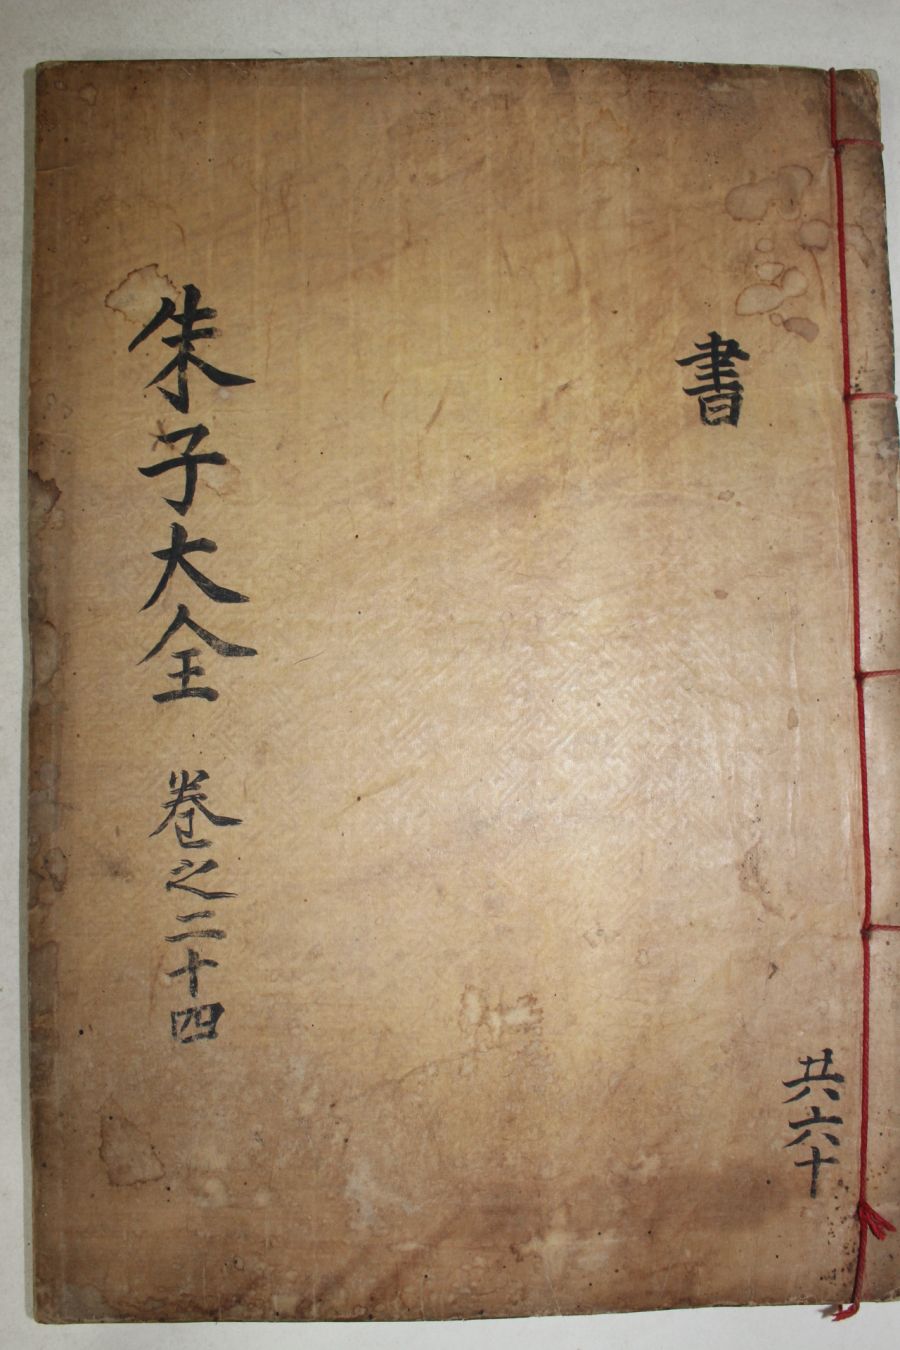 書
共六十
朱子大全 卷之二十四